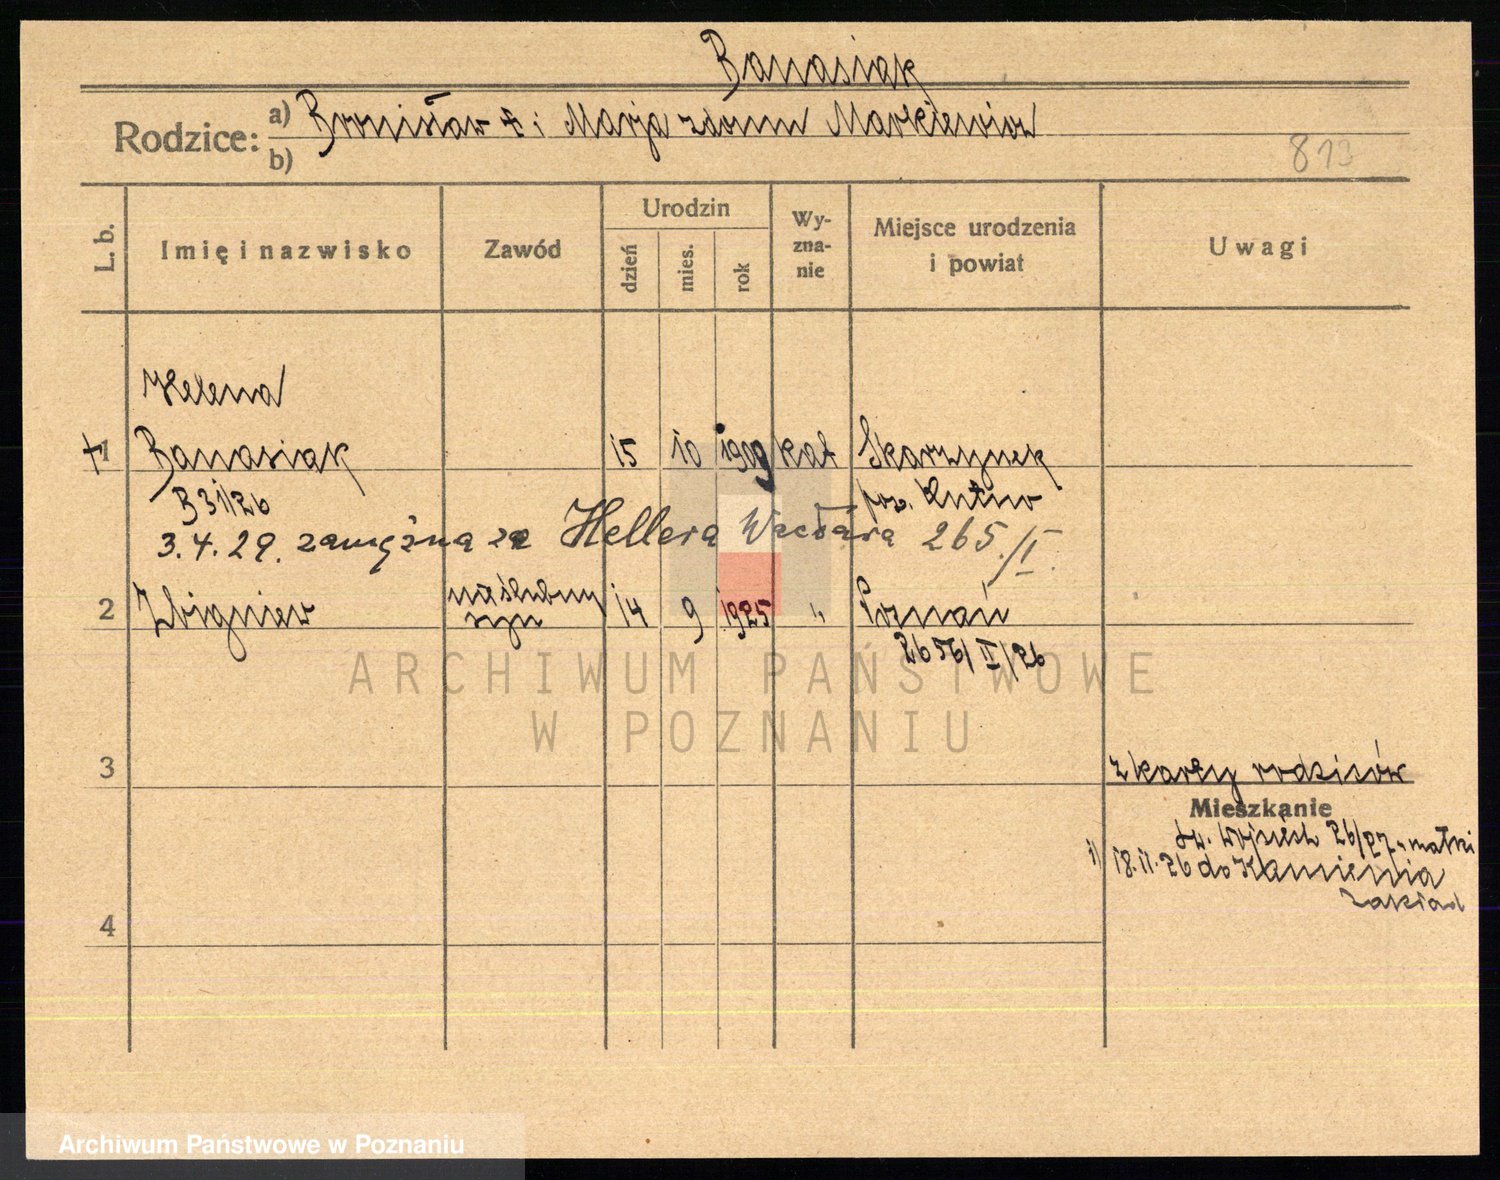 Banasiak
Rodzice: a) Bronisław i Marja z domu Markiewicz
b)
813
L. b.
Imię i nazwisko
Zawód
Urodzin
dzień
mies.
rok
Wy-
zna-
nie
Miejsce urodzenia
i powiat
Uwagi
Helena
1 Banasiak 15 10 1909 kat Skarzynek
B 31/26 pow. Kutno
3.4.29. zamężna za Hellera Wacława 265/I.
2 Zbigniew nieślubny syn 14 9 1925 " Poznań
2656/II/26
ARCHIWUM PAŃSTWOWE
W POZNANIU
3
z karty rodziców
Mieszkanie
św. Wojciech 26/27 u matki
1) 18.11.26 do Kamienia
zakład
4
Archiwum Państwowe w Poznaniu